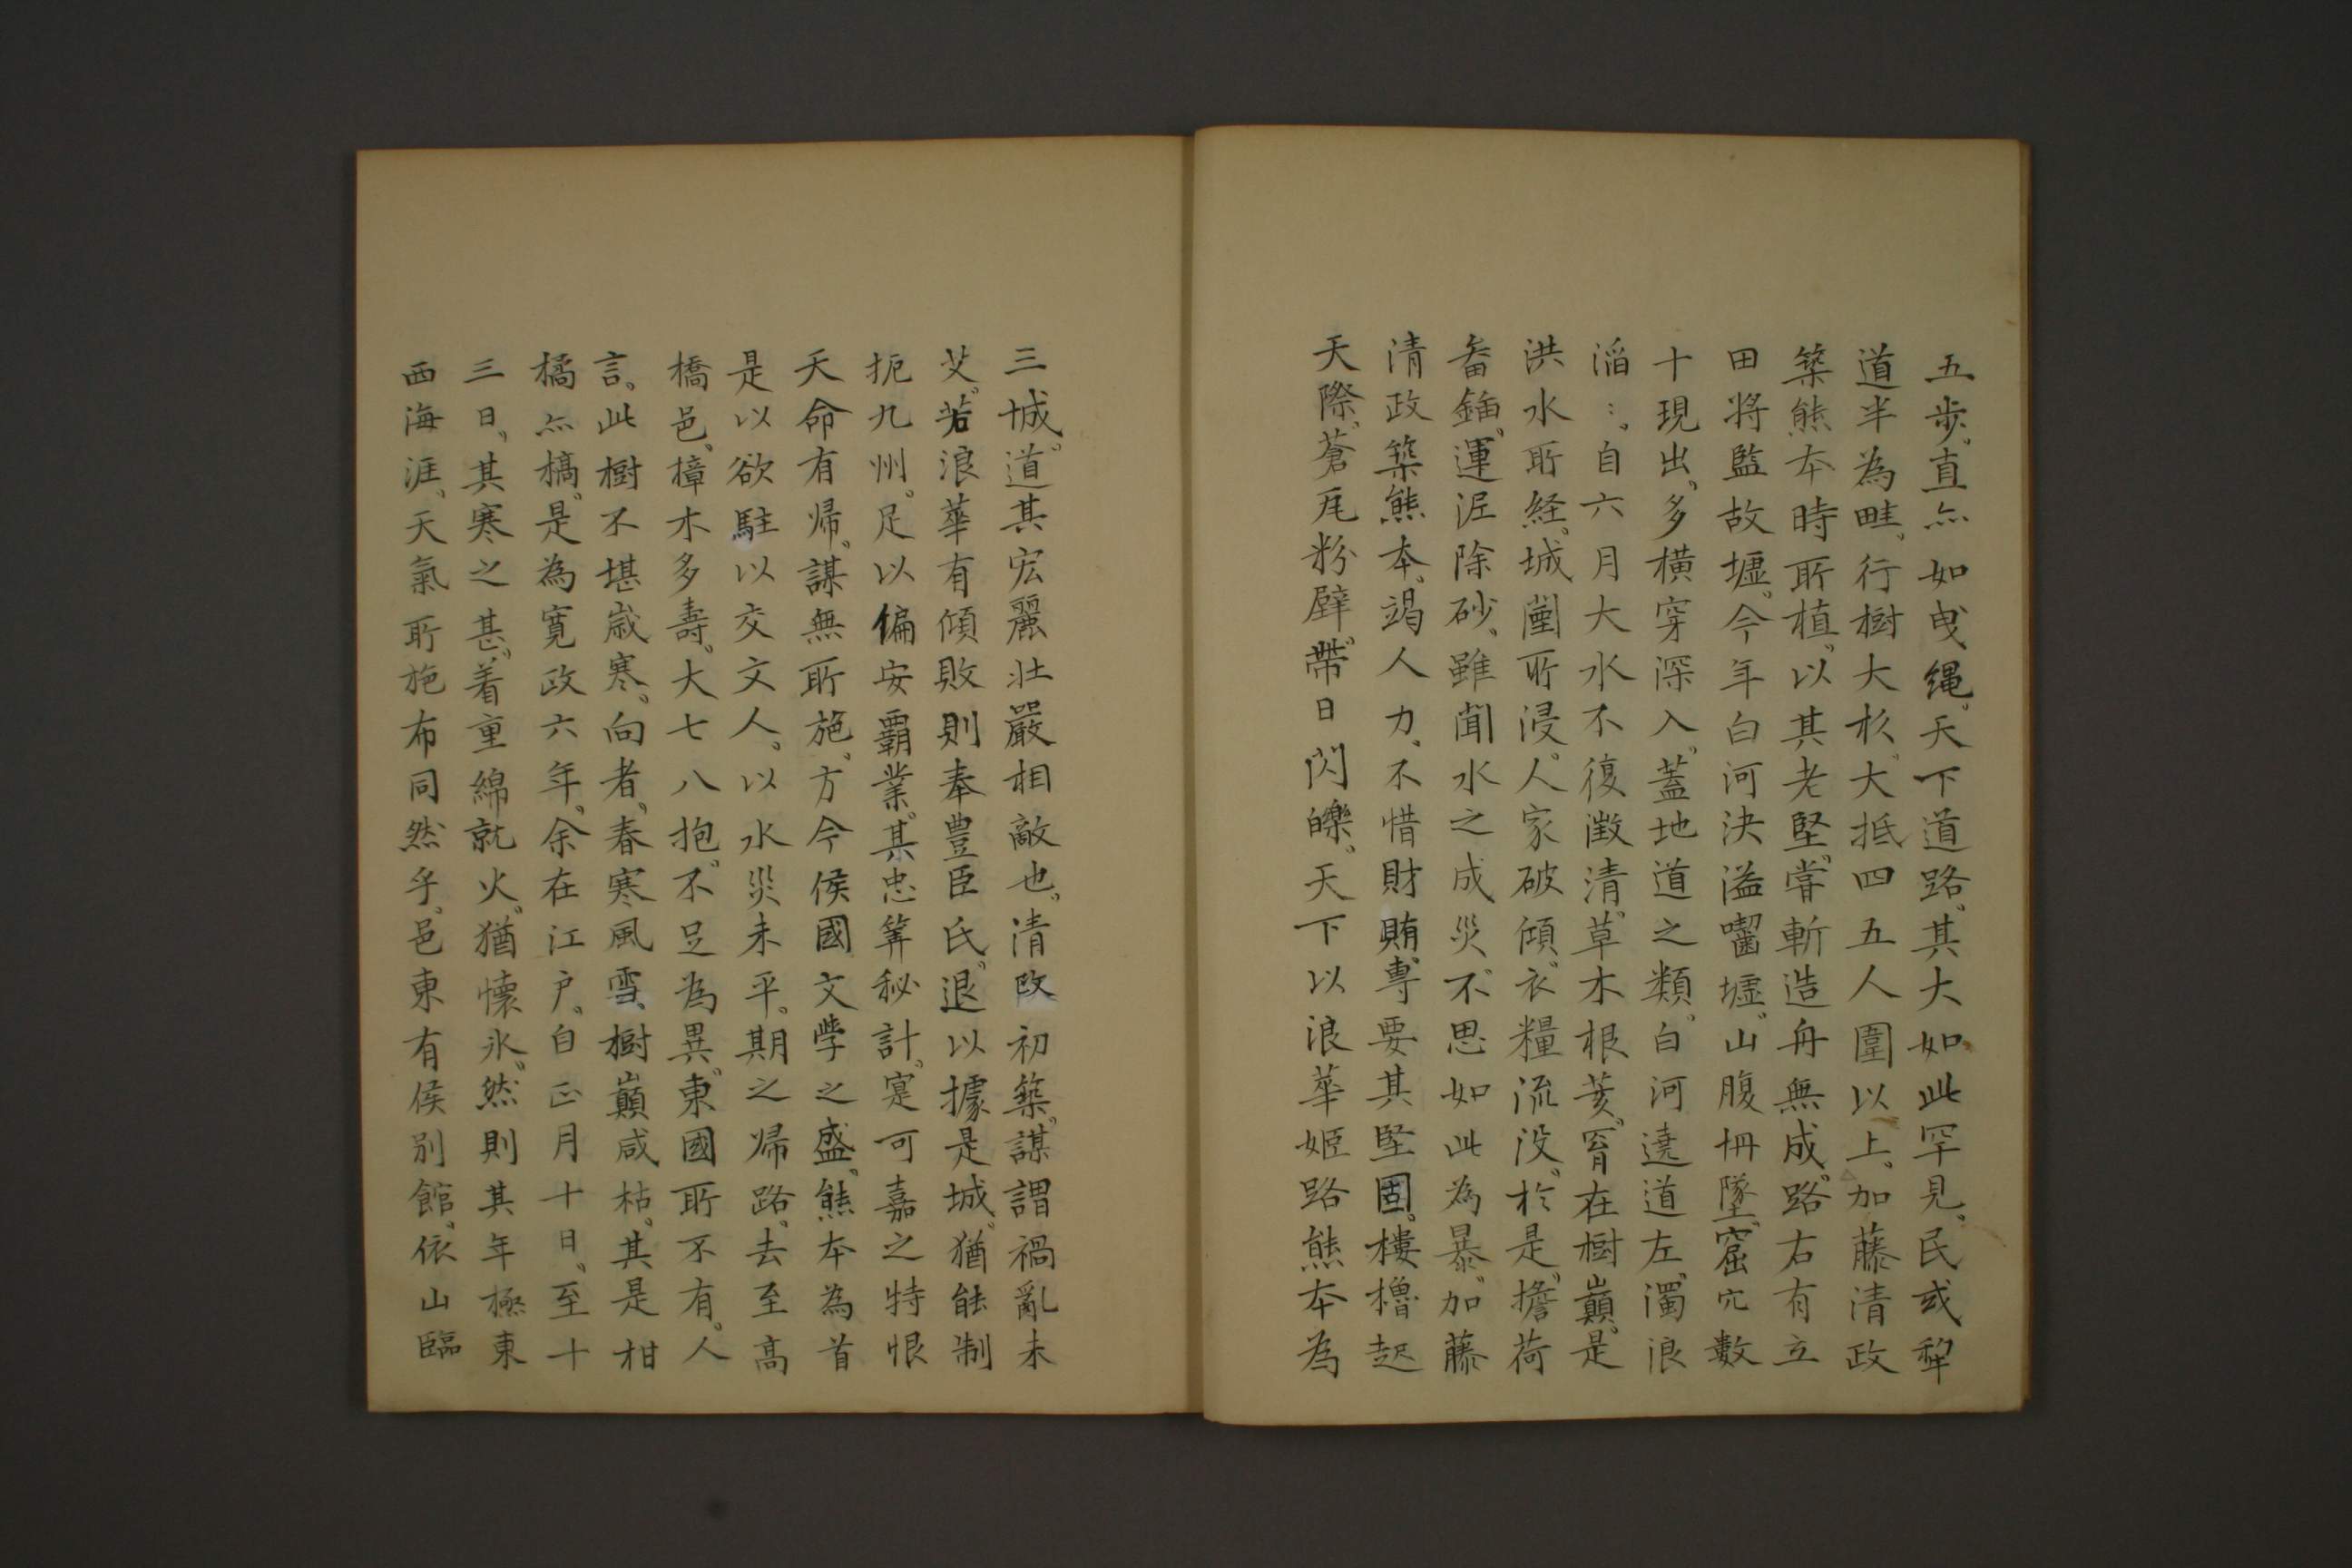 五歩、直亦如曳縄、天下道路、其大如此罕見、民或犂
道半為畦、行樹大杉、大抵四五人圍以上、加藤清政
築熊本時所植、以其老堅、嘗斬造舟無成、路右有立
田将監故墟、今年白河決溢囓墟、山腹坍墜、窟穴數
十現出、多横穿深入、蓋地道之類、白河遶道左、濁浪
滔〻、自六月大水不復澂清、草木根荄、罥在樹巔、是
洪水所経、城闉所浸、人家破傾、衣糧流没、於是、擔荷
畚鍤、運泥除砂、雖聞水之成災、不思如此為暴、加藤
清政築熊本、竭人力、不惜財賄、専要其堅固、樓櫓起
天際、蒼瓦粉壁、帶日閃皪、天下以浪華姫路熊本為
三城、道其宏麗壮嚴相敵也、清政初築、謀謂禍亂未
艾、若浪華有傾敗則奉豊臣氏、退以據是城、猶能制
扼九州、足以偏安覇業、其忠筭秘計、寔可嘉之特恨
天命有帰、謀無所施、方今侯國文学之盛、熊本為首
是以欲駐以交文人、以水災未平、期之帰路、去至高
橋邑、樟木多壽、大七八抱、不足為異、東國所不有、人
言、此樹不堪歳寒、向者、春寒風雪、樹巔咸枯、其是柑
橘亦槁、是為寛政六年、余在江戸、自正月十日、至十
三日、其寒之甚、着重綿就火、猶懐氷、然則其年極東
西海涯、天氣所施布同然乎、邑東有侯別館、依山臨